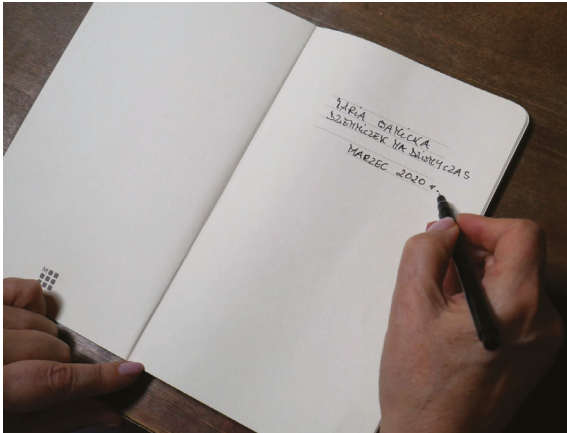 MARIA
DZIENNICZEK NA DZIWNY CZAS
MARZEC 2020 r.